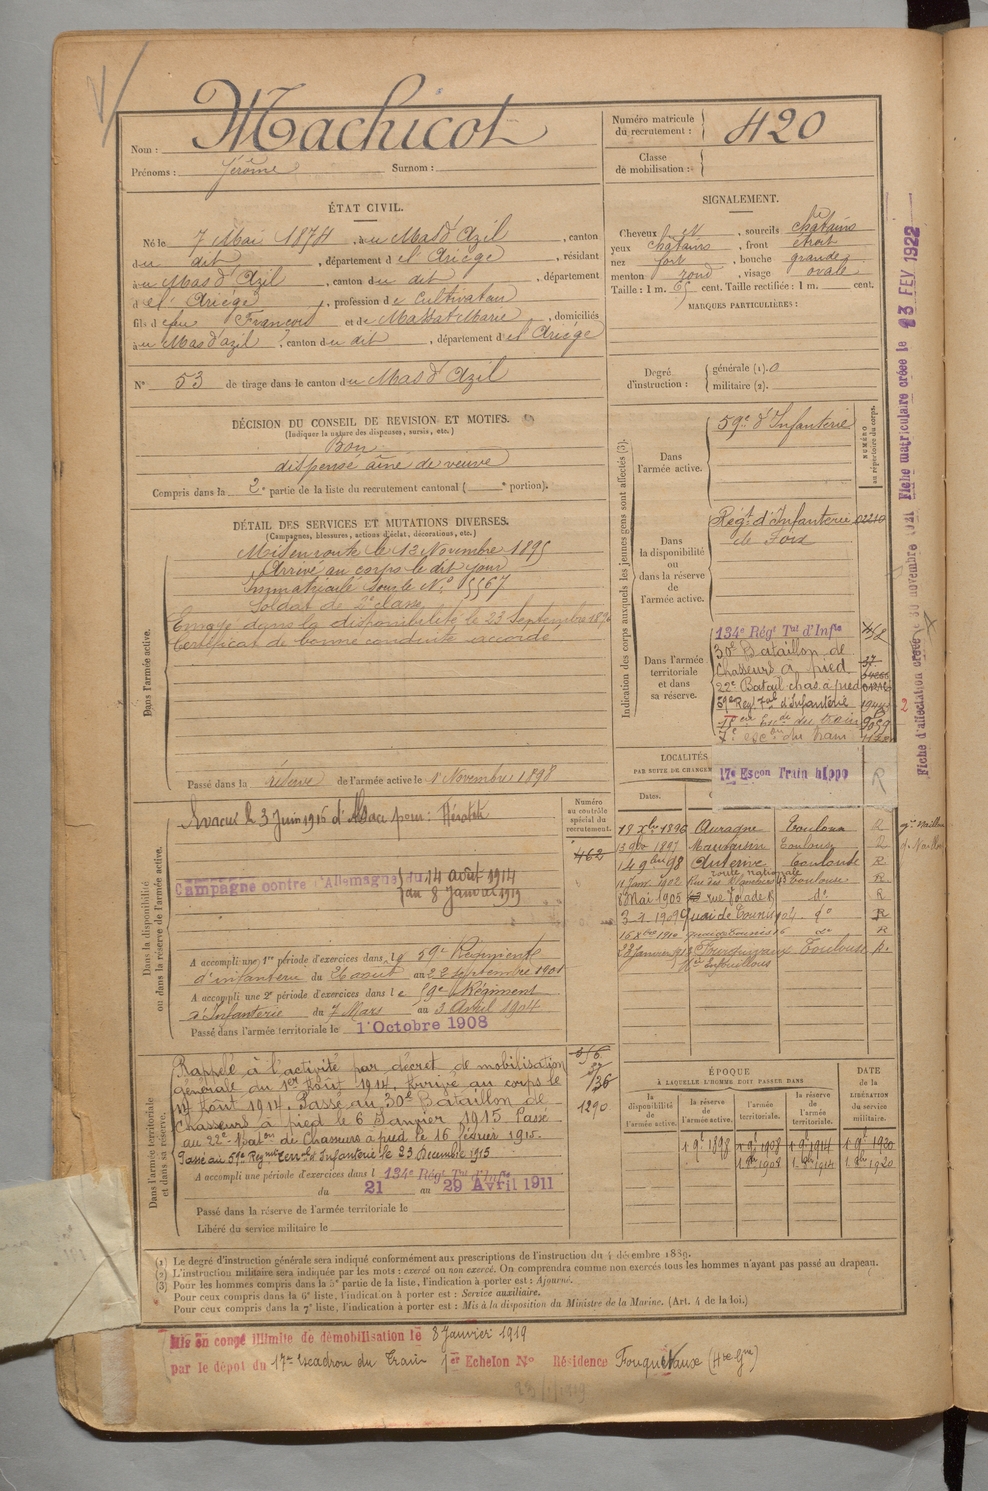 Nom : Machicot
Prénoms : Jérôme Surnom :
Numéro matricule du recrutement : 420
Classe de mobilisation :
ÉTAT CIVIL.
Né le 7 Mai 1874, à u Mas d'Azil, canton
du dit, département de l'Ariège, résidant
à u Mas d'Azil, canton du dit, département
d e l'Ariège, profession de Cultivateur
fils d feu François et de Massat Marie, domiciliés
à u Mas d'azil, canton du dit, département de l'Ariège
N° 53 de tirage dans le canton du Mas d'Azil
SIGNALEMENT.
Cheveux et, sourcils châtains
yeux châtains, front étroit
nez fort, bouche grande
menton rond, visage ovale
Taille : 1 m. 65 cent. Taille rectifiée : 1 m. cent.
MARQUES PARTICULIÈRES :
Degré d'instruction : générale (1). 0
militaire (2).
DÉCISION DU CONSEIL DE REVISION ET MOTIFS.
(Indiquer la nature des dispenses, sursis, etc.)
Bon
dispensé aîné de veuve
Compris dans la 2e partie de la liste du recrutement cantonal ( e portion).
DÉTAIL DES SERVICES ET MUTATIONS DIVERSES.
(Campagnes, blessures, actions d'éclat, décorations, etc.)
Dans l'armée active.
Mis en route le 13 Novembre 1895
Arrivé au corps le dit jour
Immatriculé sous le N° 5567
Soldat de 2e classe
Envoyé dans la disponibilité le 23 Septembre 1896
Certificat de bonne conduite accordé
Passé dans la réserve de l'armée active le 1 Novembre 1898
Indication des corps auxquels les jeunes gens sont affectés (3).
NUMÉRO au répertoire du corps.
Dans l'armée active.
59e d'Infanterie
Dans la disponibilité ou dans la réserve de l'armée active.
Régt d'Infanterie 02210
de Foix
Dans l'armée territoriale et dans sa réserve.
134e Régt Tal d'Infie
30e Bataillon de
Chasseurs à pied
22e Batail chas à pied
59e Reg Tal d'Infanterie
7e escon du train
17e Escon Train hippo
R
LOCALITÉS
PAR SUITE DE CHANGEM
Dates.
18 Xbre 1896 Auragne Toulouse R
13 9bre 1897 Mauvaisin Toulouse R
14 9bre 98 Auterive Toulouse R
route nationale
11 Janv. 1902 Toulouse R
13 Mai 1905 do R
3-2-1909 Quai de Tounis 94 do R
quai de Tounis do R
28 Janvier Fourquevaux Toulouse R.
Dans la disponibilité ou dans la réserve de l'armée active.
Numéro au contrôle spécial du recrutement.
462
Evacué le 3 Juin 1916 d'Alsace pour :
Campagne contre l'Allemagne du 14 août 1914
au 8 janvier 1919
A accompli une 1re période d'exercices dans le 59e Régiment
d'infanterie du 26 août au 22 septembre 1901
A accompli une 2e période d'exercices dans le 59e Régiment
d'Infanterie du 7 Mars au 3 Avril 1904
Passé dans l'armée territoriale le 1 Octobre 1908
Dans l'armée territoriale et dans sa réserve.
Rappelé à l'activité par décret de mobilisation
générale du 1er Août 1914. Arrivé au corps le
14 Août 1914. Passé au 30e Bataillon de
Chasseurs à pied le 6 Janvier 1915. Passé
au 22e Baton de Chasseurs à pied le 16 février 1915.
Passé au 59e Regimt Terral d'Infanterie le 23 Décembre 1915
136
1290
A accompli une période d'exercices dans l 134e Régt Tal d'Infie
du 21 au 29 Avril 1911
Passé dans la réserve de l'armée territoriale le
Libéré du service militaire le
ÉPOQUE
À LAQUELLE L'HOMME DOIT PASSER DANS
la disponibilité de l'armée active.
la réserve de l'armée active.
l'armée territoriale.
la réserve de l'armée territoriale.
DATE de la LIBÉRATION du service militaire.
1 9e 1898 1 9e 1908 1 9e 1914 1 9e 1920
1 8bre 1908 1 8bre 1914 1 8bre 1920
(1) Le degré d'instruction générale sera indiqué conformément aux prescriptions de l'instruction du 4 décembre 1889.
(2) L'instruction militaire sera indiquée par les mots : exercé ou non exercé. On comprendra comme non exercés tous les hommes n'ayant pas passé au drapeau.
(3) Pour les hommes compris dans la 5e partie de la liste, l'indication à porter est : Ajourné.
Pour ceux compris dans la 6e liste, l'indication à porter est : Service auxiliaire.
Pour ceux compris dans la 7e liste, l'indication à porter est : Mis à la disposition du Ministre de la Marine. (Art. 4 de la loi.)
Mis en congé illimité de démobilisation le 8 Janvier 1919
par le dépôt du 17e Escadron du Train 1er Echelon N° Résidence Fourquevaux (Hte Gne)
Fiche d'affectation créée 30 novembre 1921 Fiche matriculaire créée le 23 FEV 1922